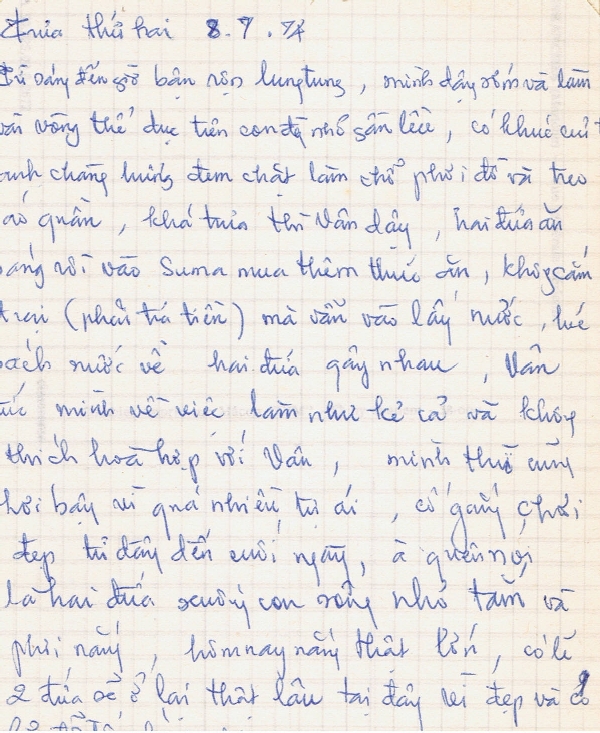 Trưa thứ hai 8.7.74
Từ sáng đến giờ bận rộn lung tung, mình dậy sớm và làm
vài vòng thể dục trên con đê nhỏ gần lều, có khúc củi
anh chàng đem chặt làm chỗ phơi đồ và treo
áo quần, khá trưa thì Vân dậy, hai đứa ăn
sáng rồi vào Suma mua thêm thức ăn, không cắm
trại (phải trả tiền) mà vẫn vào lấy nước, lúc
xách nước về hai đứa gây nhau, Vân
tức mình về việc làm như kẻ cả và không
thích hoà hợp với Vân, mình thật cũng
hơi bậy vì quá nhiều tự ái, cố gắng chơi
đẹp từ đây đến cuối ngày, à quên nói
là hai đứa xuống con sông nhỏ tắm và
phơi nắng, hôm nay nắng thật lớn, có lẽ
2 đứa sẽ ở lại thật lâu tại đây vì đẹp và có